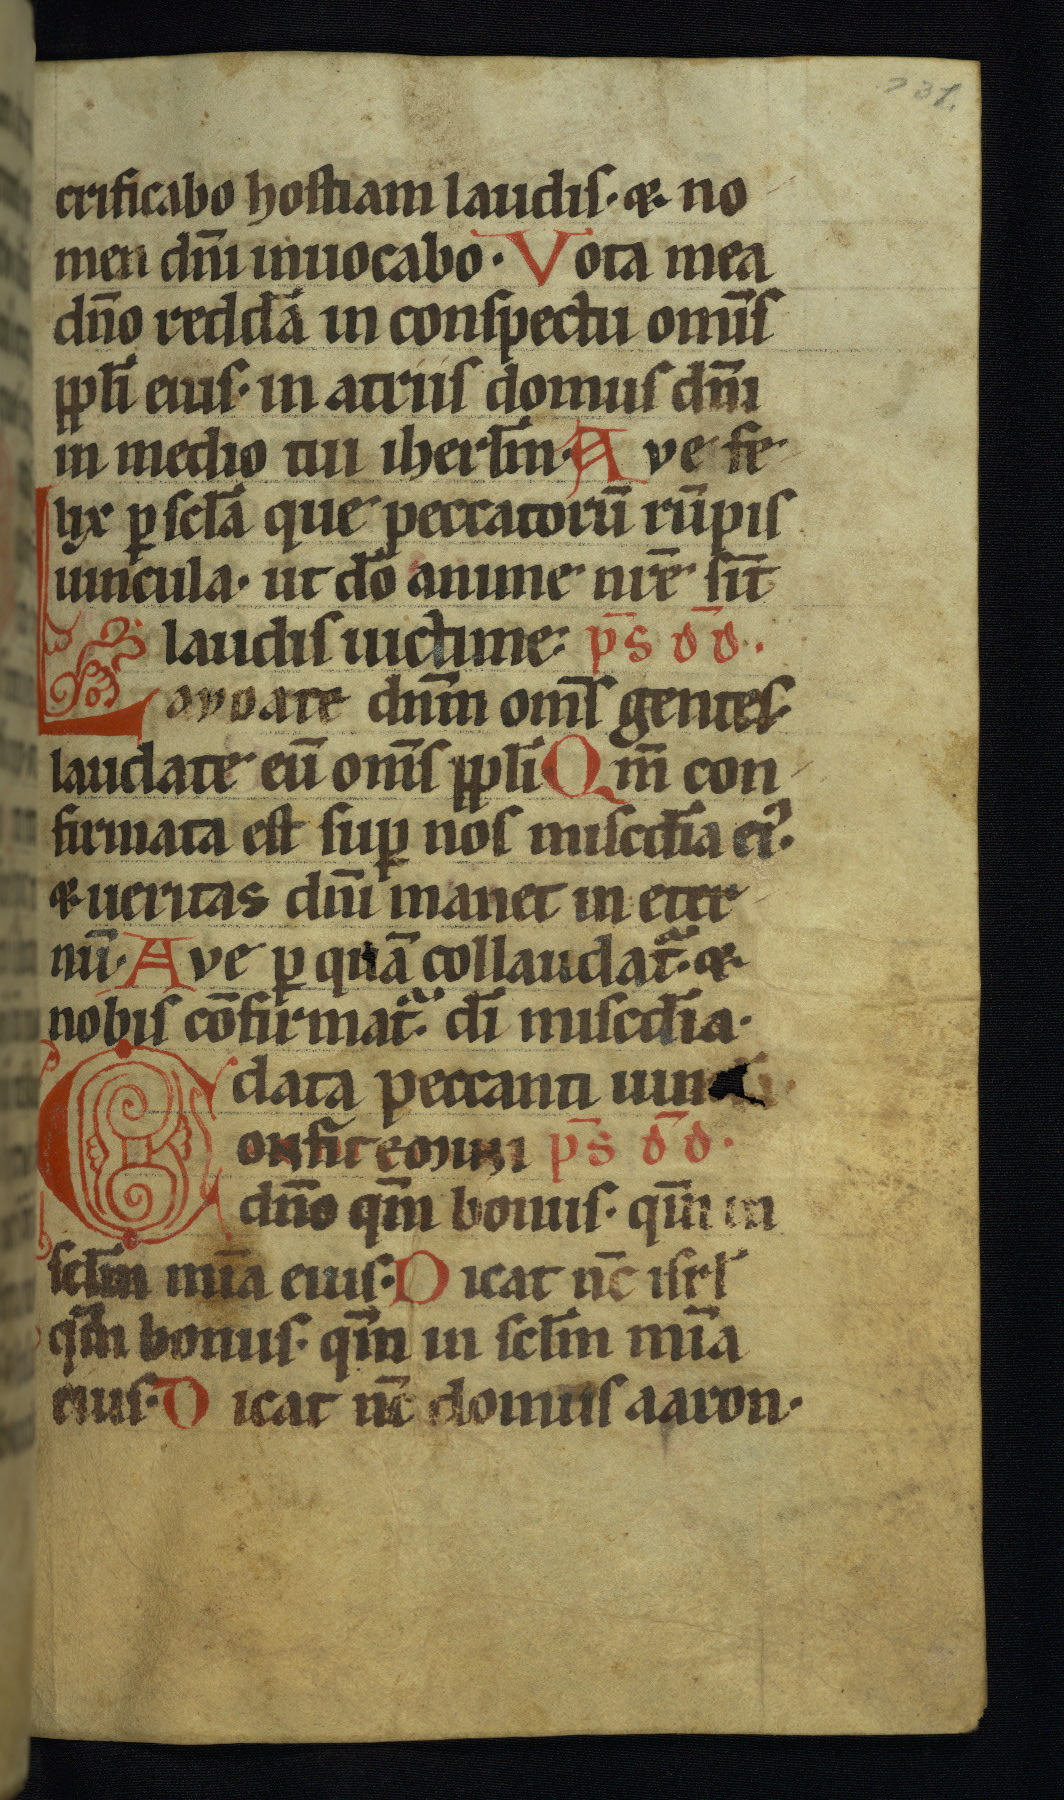 231.
crificabo hostiam laudis· ⁊· no
men dn̄i inuocabo· Vota mea
dn̄o reddā in conspectu om̄is
ppl̄i eius· in atriis domus dn̄i
in medio tui iherl̄m· Ave fe
lix p sclā que peccatorū rūpis
uincula· ut do anime nr̄e sīt
laudis uictime· p̄s d̄d̄·
Laudate dn̄m om̄s gentes·
laudate eū om̄s ppl̄i Qm̄ con
firmata est sup nos miscd̄ia ei᾿·
⁊ ueritas dn̄i manet in eter
nū· Ave p quā collaudat᷑· ⁊
nobis cōfirmat᷑· dī miscd̄ia·
data peccanti
Confitemini p̄s d̄d̄·
dn̄o qm̄ bonus· qm̄ in
scl̄m mīa eius· Dicat nc̄ isrl̄
qm̄ bonus· qm̄ in scl̄m mīa
eius· Dicat nc̄ domus aaron·